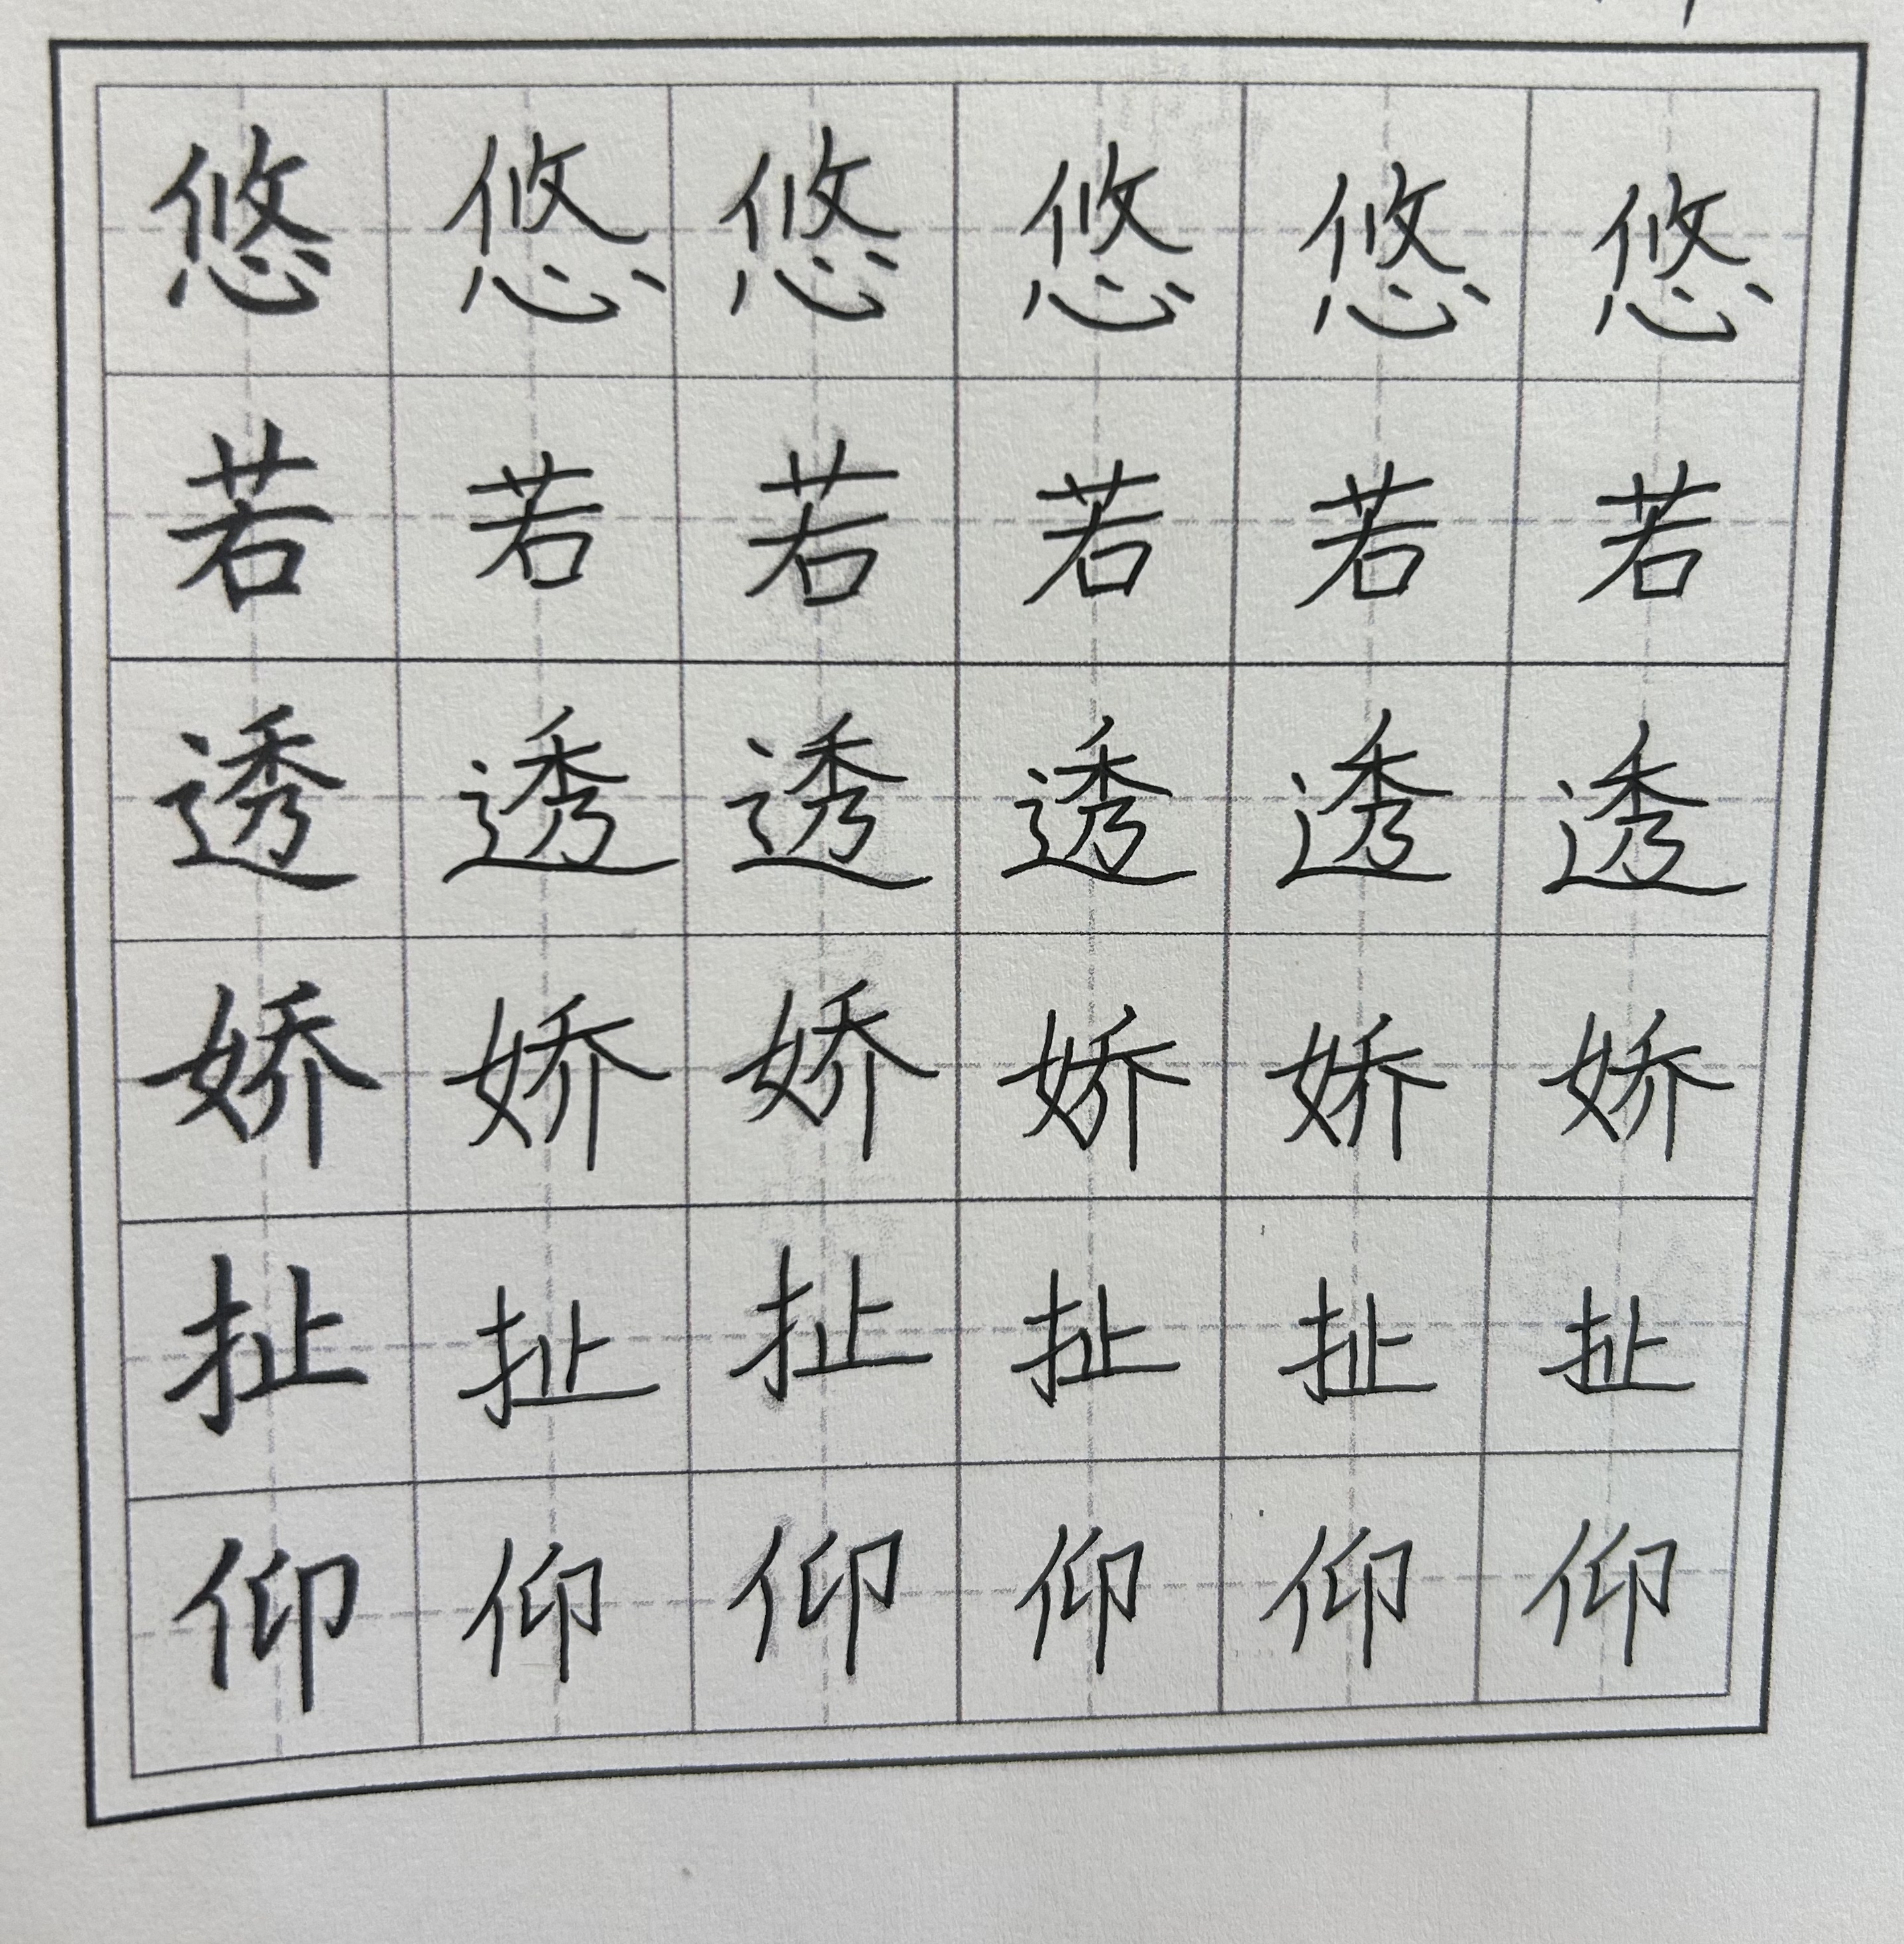 悠悠悠悠悠悠
若若若若若若
透透透透透透
娇娇娇娇娇娇
扯扯扯扯扯扯
仰仰仰仰仰仰